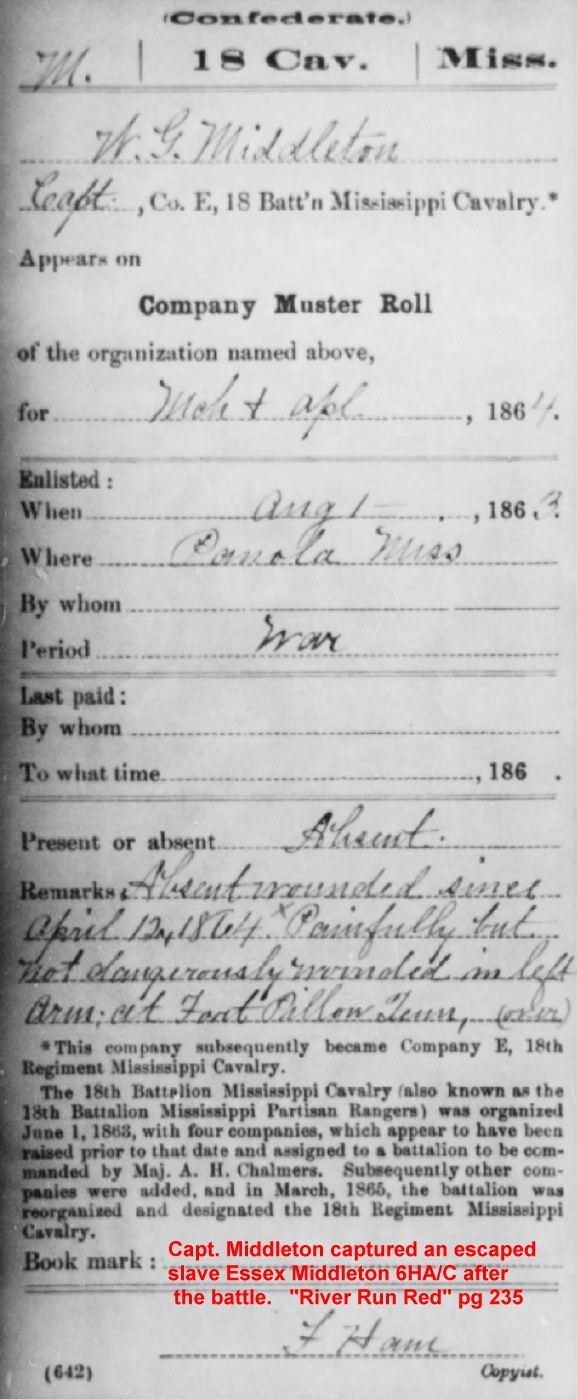 (Confederate.)
M. | 18 Cav. | Miss.
W. G. Middleton
Capt., Co. E, 18 Batt'n Mississippi Cavalry.*
Appears on
Company Muster Roll
of the organization named above,
for Mch & Apl, 1864.
Enlisted:
When Aug 1, 1863.
Where Panola Miss
By whom
Period War
Last paid:
By whom
To what time, 186 .
Present or absent Absent.
Remarks: Absent wounded since
April 12, 1864. x Painfully but
not dangerously wounded in left
Arm; at Fort Pillow Tenn, (over)
*This company subsequently became Company E, 18th
Regiment Mississippi Cavalry.
The 18th Battalion Mississippi Cavalry (also known as the
18th Battalion Mississippi Partisan Rangers) was organized
June 1, 1863, with four companies, which appear to have been
raised prior to that date and assigned to a battalion to be com-
manded by Maj. A. H. Chalmers. Subsequently other com-
panies were added, and in March, 1865, the battalion was
reorganized and designated the 18th Regiment Mississippi
Cavalry.
Book mark:
Capt. Middleton captured an escaped
slave Essex Middleton 6HA/C after
the battle. "River Run Red" pg 235
F Ham
(642) Copyist.